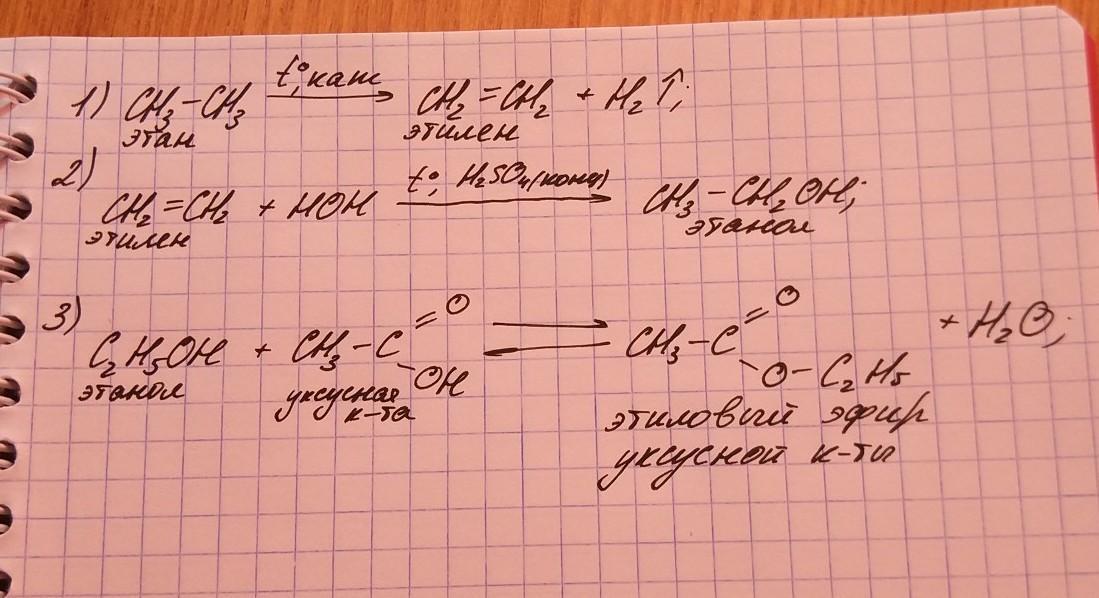 1) CH₃-CH₃ t°, кат → CH₂=CH₂ + H₂↑;
этан этилен
2) CH₂=CH₂ + HOH t°, H₂SO₄(конц) → CH₃-CH₂OH;
этилен этанол
3) C₂H₅OH + CH₃-C(=O)-OH ⇄ CH₃-C(=O)-O-C₂H₅ + H₂O;
этанол уксусная к-та этиловый эфир
уксусной к-ты